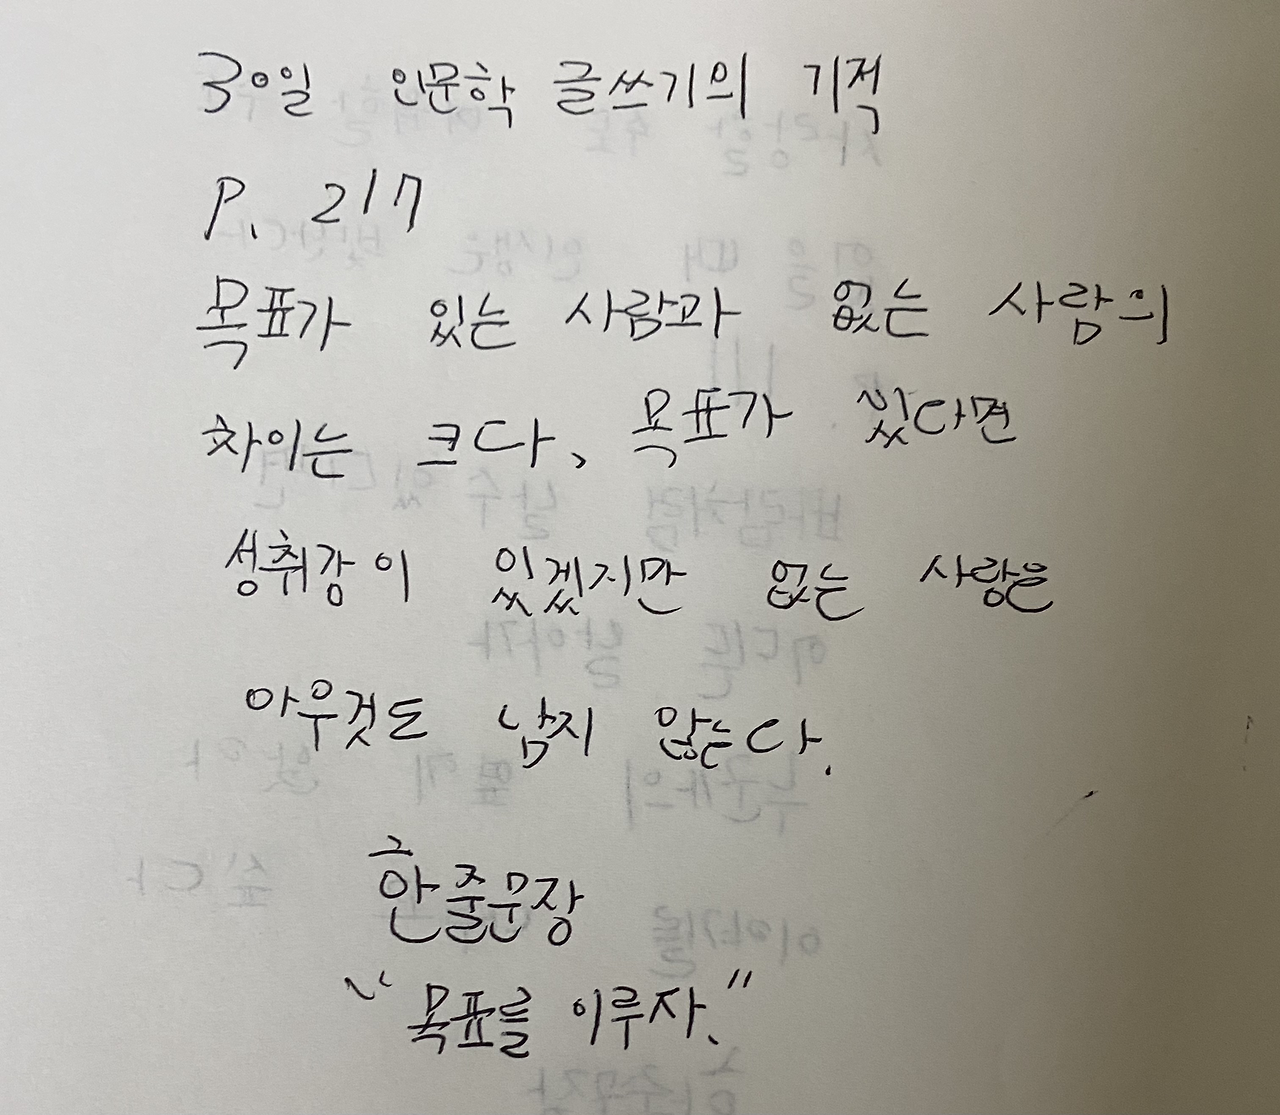 30일 인문학 글쓰기의 기적
P. 217
목표가 있는 사람과 없는 사람의
차이는 크다, 목표가 있다면
성취감이 있겠지만 없는 사람은
아무것도 남지 않는다.
한줄문장
"목표를 이루자."